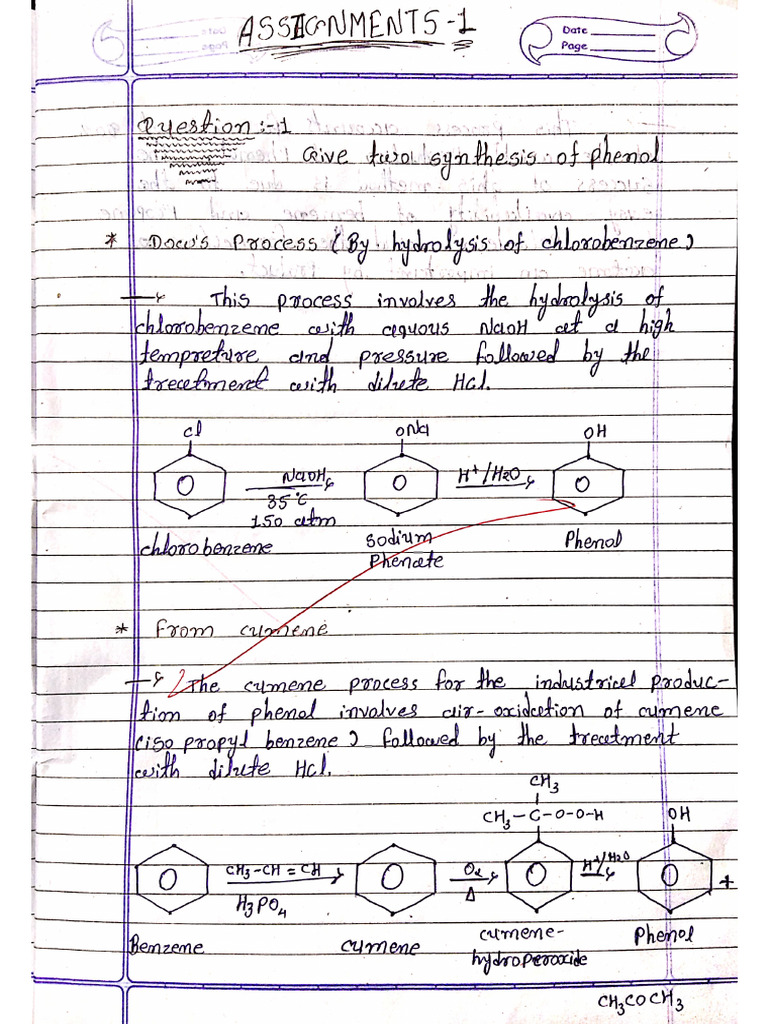 ASSIGNMENTS-1
Date
Page
Question:-1
Give two synthesis of phenol
* Dow's Process (By hydrolysis of chlorobenzene)
This process involves the hydrolysis of
chlorobenzene with aquous NaOH at a high
tempreture and pressure followed by the
treatment with dilute HCl.
Cl ONa OH
NaOH H+/H2O
35°C
150 atm
chlorobenzene Sodium Phenol
Phenate
* From cumene
The cumene process for the industrical produc-
tion of phenol involves air-oxidation of cumene
(iso propyl benzene) followed by the treatment
with dilute HCl.
CH3
CH3-C-O-O-H OH
CH3-CH=CH O2 H+/H2O
H3PO4 Δ +
Benzene cumene cumene- Phenol
hydroperoxide
CH3COCH3